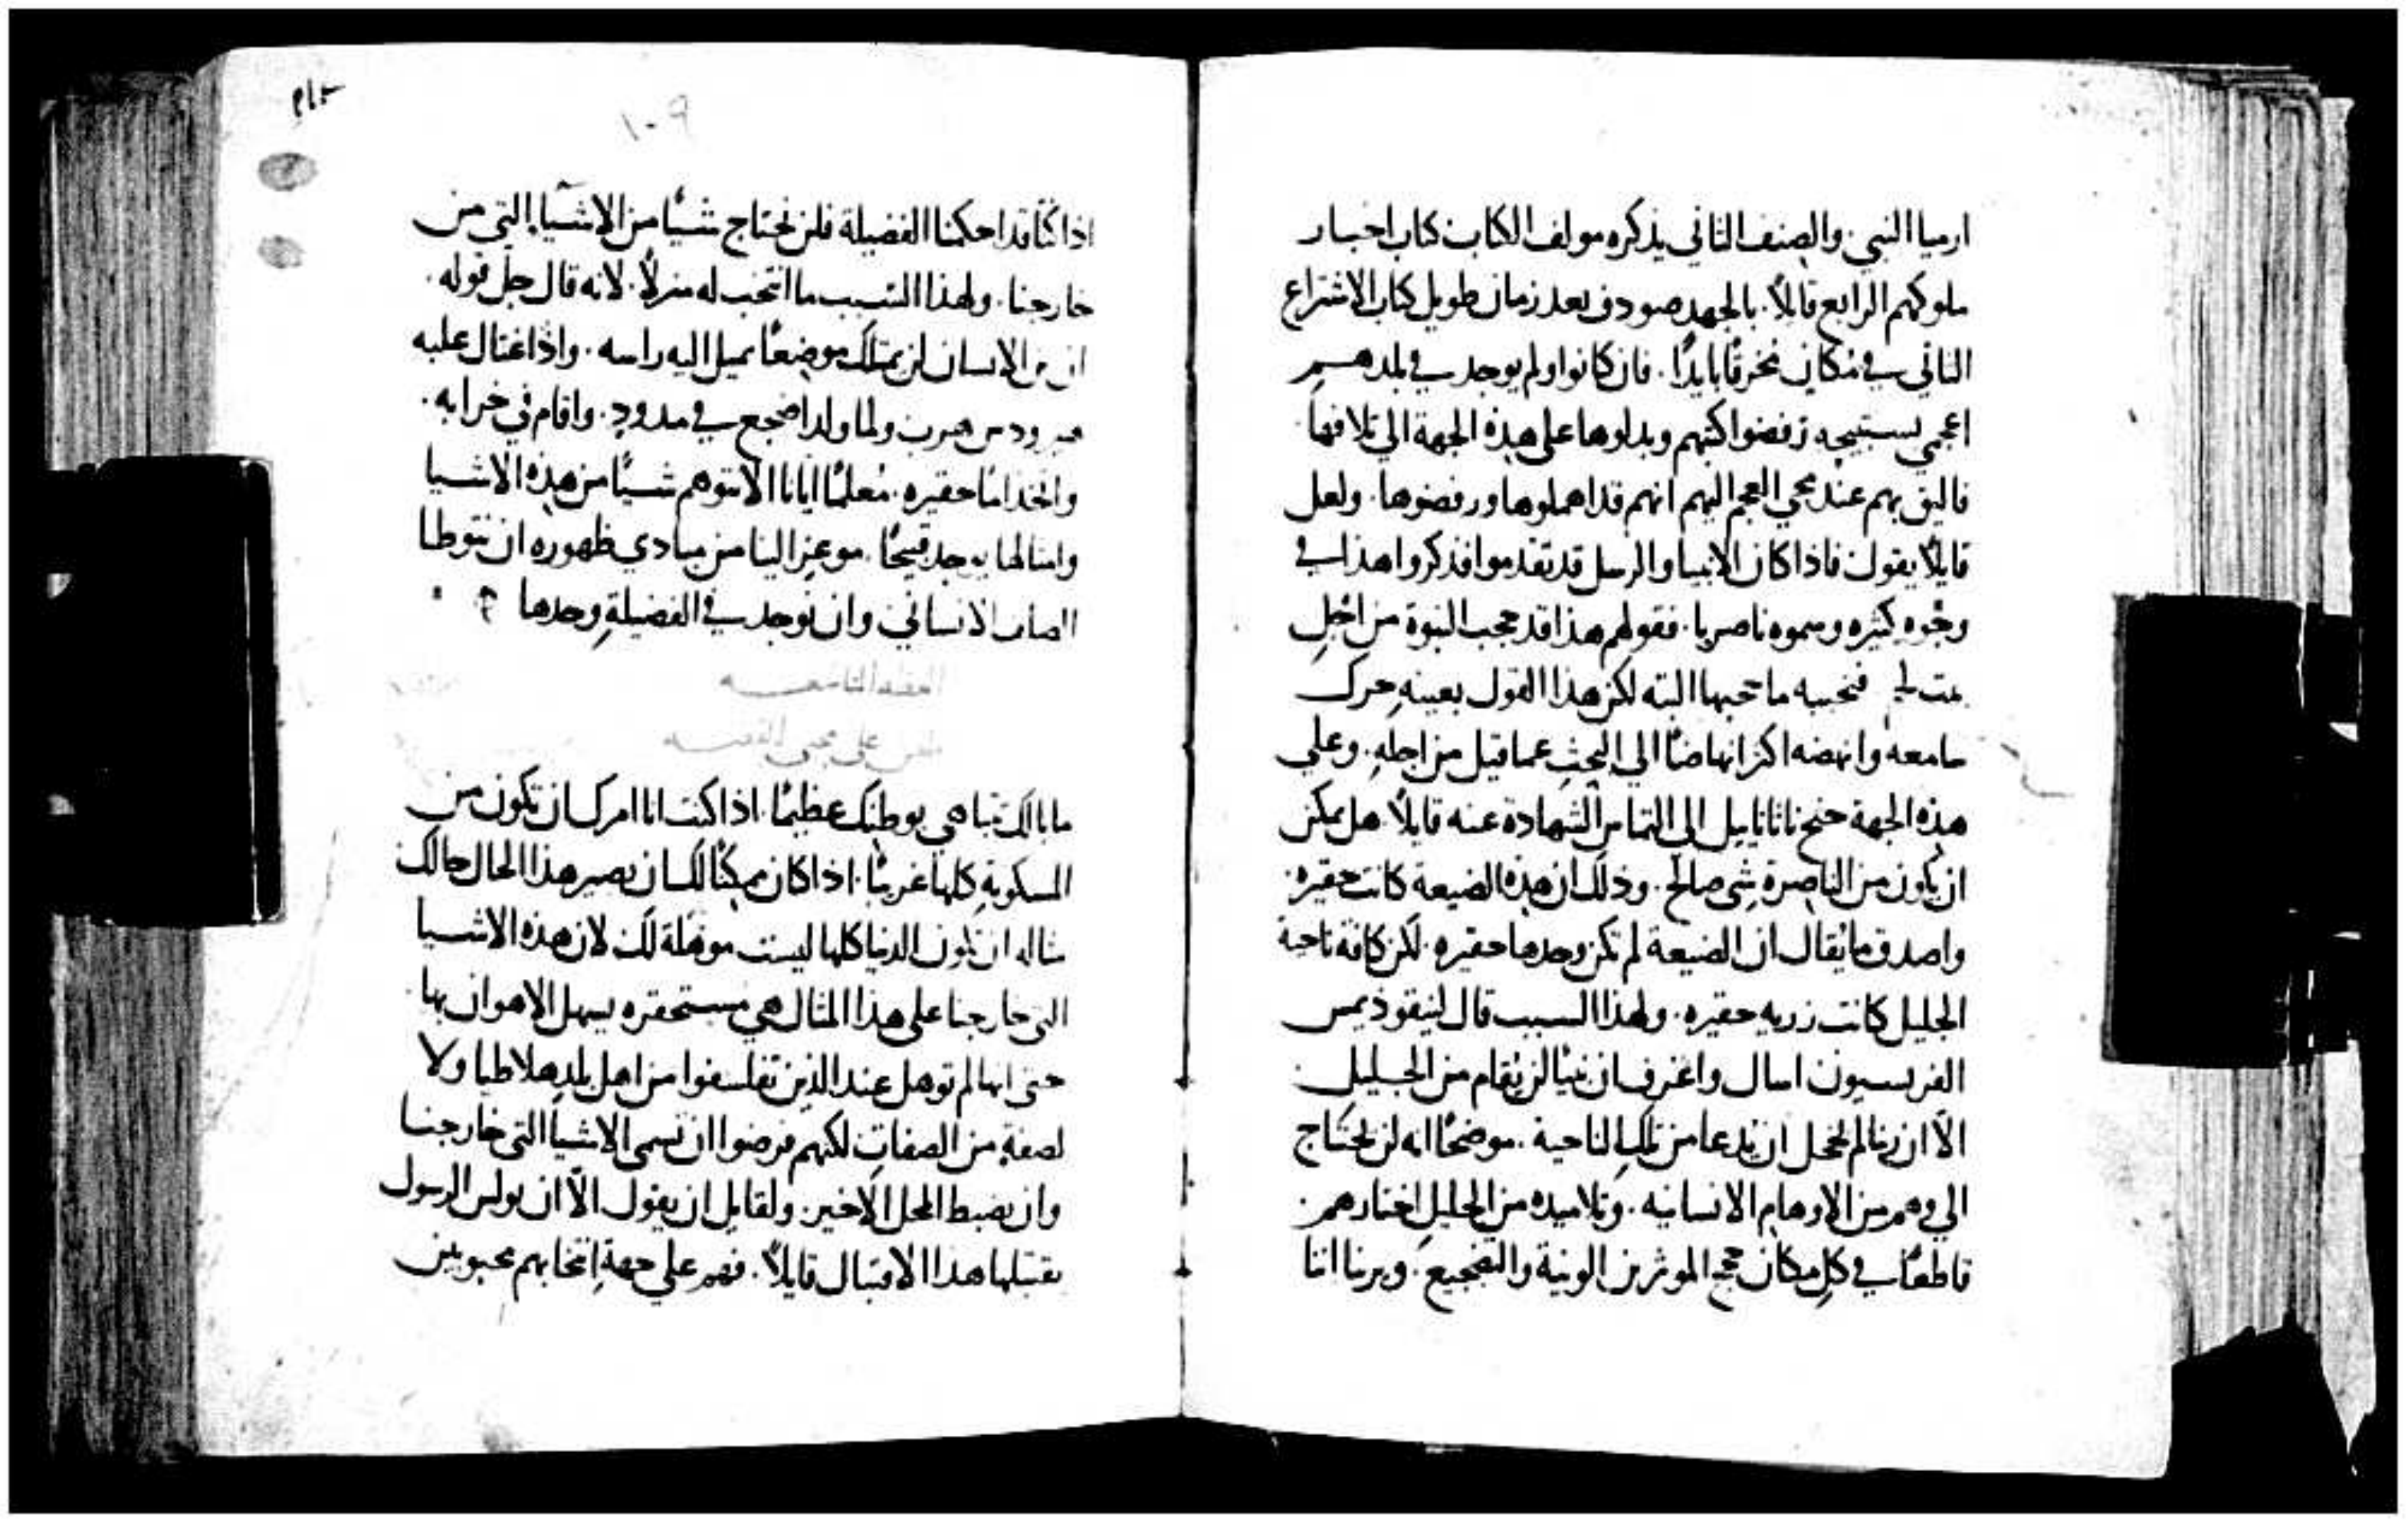 ارميا النبي. والصنف الثاني يذكره مولف الكتاب كتاب اخبار
ملوكهم الرابع قايلاً. بالجهد صودف بعد زمان طويل كتاب الاشتراع
الثاني في مكان مخرقًا بايدًا. فان كانوا ولم يوجد في بلدهم
اعجمي يستبيحه رفضوا كتبهم وبدلوها على هذه الجهة الي تلافها
فاليق بهم عند مجي العجم اليهم انهم قد اهملوها ورفضوها. ولعل
قايلاً يقول فاذا كان الانبيا والرسل قد تقدموا فذكروا هذا في
وجوه كثيره وسموه ناصريا. فقولهم هذا قد حجب النبوة من اجل
بيت لحم فنجيبه ما حجبها البته لكن هذا القول بعينه حرك
سامعه وانهضه اكثر انهاضًا الي البحث عما قيل من اجله. وعلي
هذه الجهة جنح ناثاناييل الى التماس الشهادة عنه قايلاً. هل يمكن
ان يكون من الناصرة شي صالح. وذلك ان هذه الضيعة كانت حقيره.
واصدق ما يقال ان الضيعة لم تكن وحدها حقيره. لكن كافة ناحية
الجليل كانت زريه حقيره. ولهذا السبب قال لنيقوذيمس
الفريسيون اسال واعرف ان نبيًا لن يقام من الجليل
الا ان ربنا لم يخجل ان يدعا من تلك الناحية. موضحًا انه لن يحتاج
الي وهم من الاوهام الانسانيه. وتلاميذه من الجليل اختارهم.
قاطعًا في كل مكان حجج الموثرين الونية والتضجيع. ويرينا اننا
١٠٩
اذا كنا قد احكمنا الفضيلة فلن نحتاج شيًا من الاشيا التي من
خارجنا. ولهذا السبب ما انتخب له منزلاً. لانه قال جل قوله.
ان ابن الانسان لن يمتلك موضعًا يميل اليه راسه. واذ اغتال عليه
هيرودس هرب ولما ولد اضجع في مدود. واقام في خرابه.
واتخذ امًا حقيره. مُعلمًا ايانا الا نتوهم شيًا من هذه الاشيا
وامثالها يوجد قبيحًا. موعزا الينا من مبادي ظهوره ان نتوطا
الصلف الانساني وان نوجد في الفضيلة وحدها
العظه التاسعه
ما بالك تتباهي بوطنك عظيمًا. اذا كنت انا امرك ان تكون من
المسكونة كلها غريبًا. اذا كان ممكنًا لك ان يصير هذا الحال حالك
مثاله ان تكون الدنيا كلها ليست موهلة لك لان هذه الاشيا
التي خارجنا على هذا المثال هي مستحقره يسهل الاهوان بها
حتى انها لم توهل عند الذين تفلسفوا من اهل بلد هلاطيا ولا
لصفةٍ من الصفات لكنهم فرضوا ان تسمى الاشيا التي خارجنا
وان يضبط المحل الاخير. ولقايل ان يقول الا ان بولس الرسول
يقتبلها هذا الاقتبال قايلاً. فهم على جهة انتخابهم محبوبين